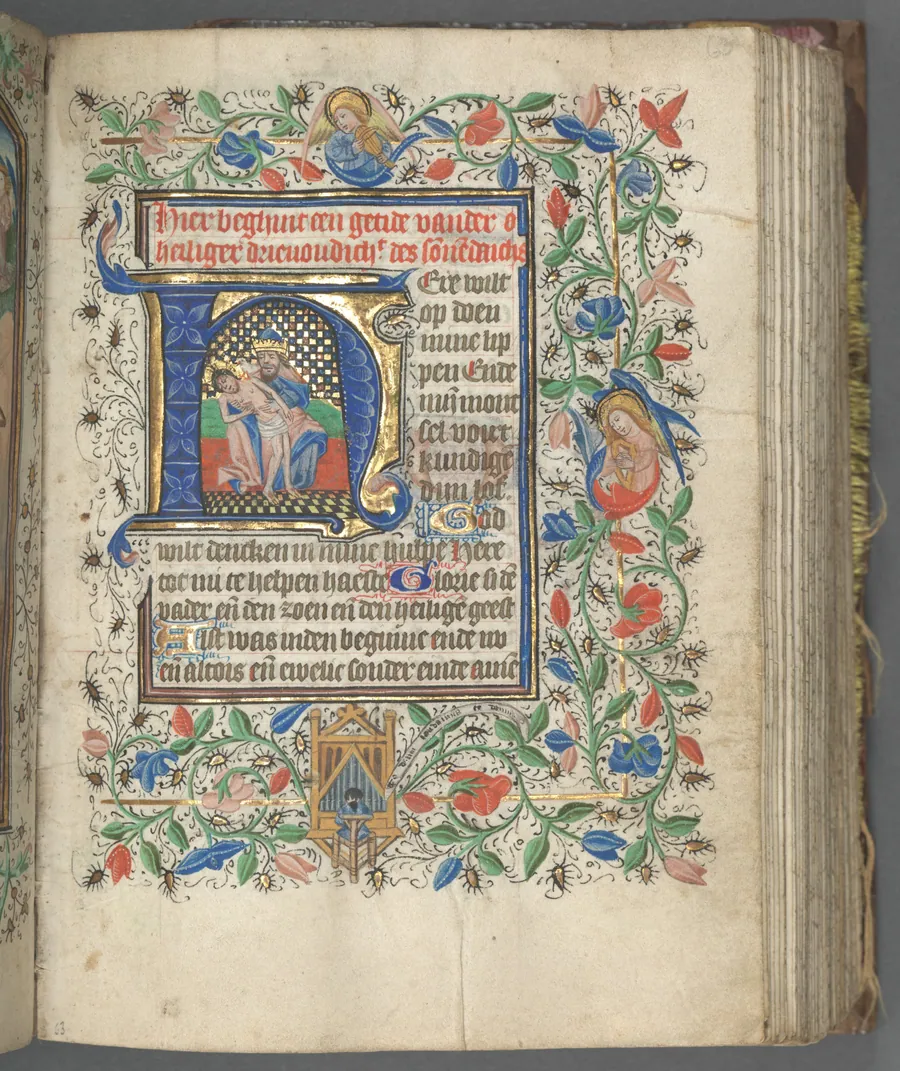 Hier beghint een getide vander o
heiliger drieuoudich^t des sōnēdaichs
HEre wilt
op doen
mine lip
pen Ende
mijn mont
sel voert
kundigē
dijn lof.
God
wilt dencken in mine hulpe Here
tot mi te helpen haeste Glorie si dē
vader eñ den zoen eñ den heiligē geest
Alst was inden beginne ende nv
eñ altois eñ ewelic sonder einde amē
63